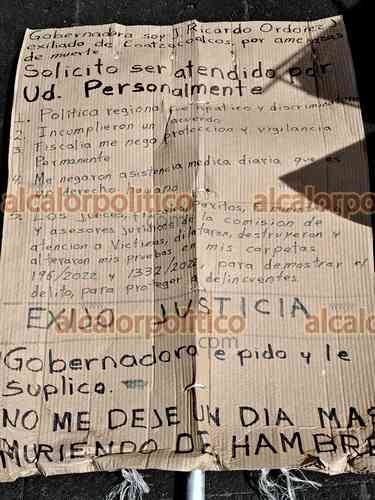 Gobernadora soy J. Ricardo Ordoñez
exiliado de Coatzacoalcos, por amenazas
de muerte
Solicito ser atendido por
Ud. Personalmente
1. Politica regional fue apatico y discriminatorio
2. Incumplieron un acuerdo
3. Fiscalia me nego proteccion y vigilancia
Permanente
4. Me negaron asistencia medica diaria que es
un derecho humano
alcalorpolitico alcalorpolitico alcalorpolitico
5. Los jueces, peritos,
y asesores juridicos de la comision de
atencion a Victimas, dilataron, destruyeron y
alteraron mis pruebas en mis carpetas
196/2022 y 1332/2022, para demostrar el
delito, para proteger delincuentes
EXIJO JUSTICIA
alcalorpolitico alcalorpolitico
.com
Gobernadora le pido y le
suplico.
NO ME DEJE UN DIA MAS
MURIENDO DE HAMBRE